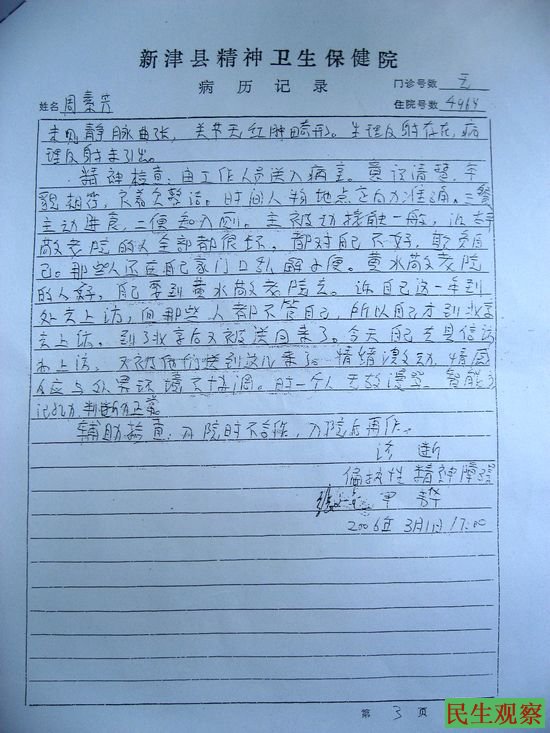 新津县精神卫生保健院
病历记录
门诊号数 无
姓名 周素芳
住院号数 4964
未见静脉曲张，关节无红肿畸形。生理反射存在，病
理反射未引出。
精神检查：由工作人员送入病室。意识清楚，年
貌相符，衣着欠整洁。时间人物地点定向力准确。三餐
主动进食，二便知入厕。主被动接触一般，
敬老院的人全部都很坏，都对自己不好，欺负自
己。那些人还在自己家门口 解小便。黄水敬老院
的人好，自己要到黄水敬老院去。诉自己这一年到
处去上访，但那些人都不管自己，所以自己才到北京
去上访。到了北京后又被送回来了。今天自己去县信访
办上访，又被他们送到这儿来了。情绪激动，情感
反应与外界环境不协调。时一个人 漫骂。智能、
记忆力、判断力正常。
辅助检查：入院时不合作，入院后再作。
诊断
偏执性精神障碍
2006年3月1日 17:00
第 3 页
民生观察